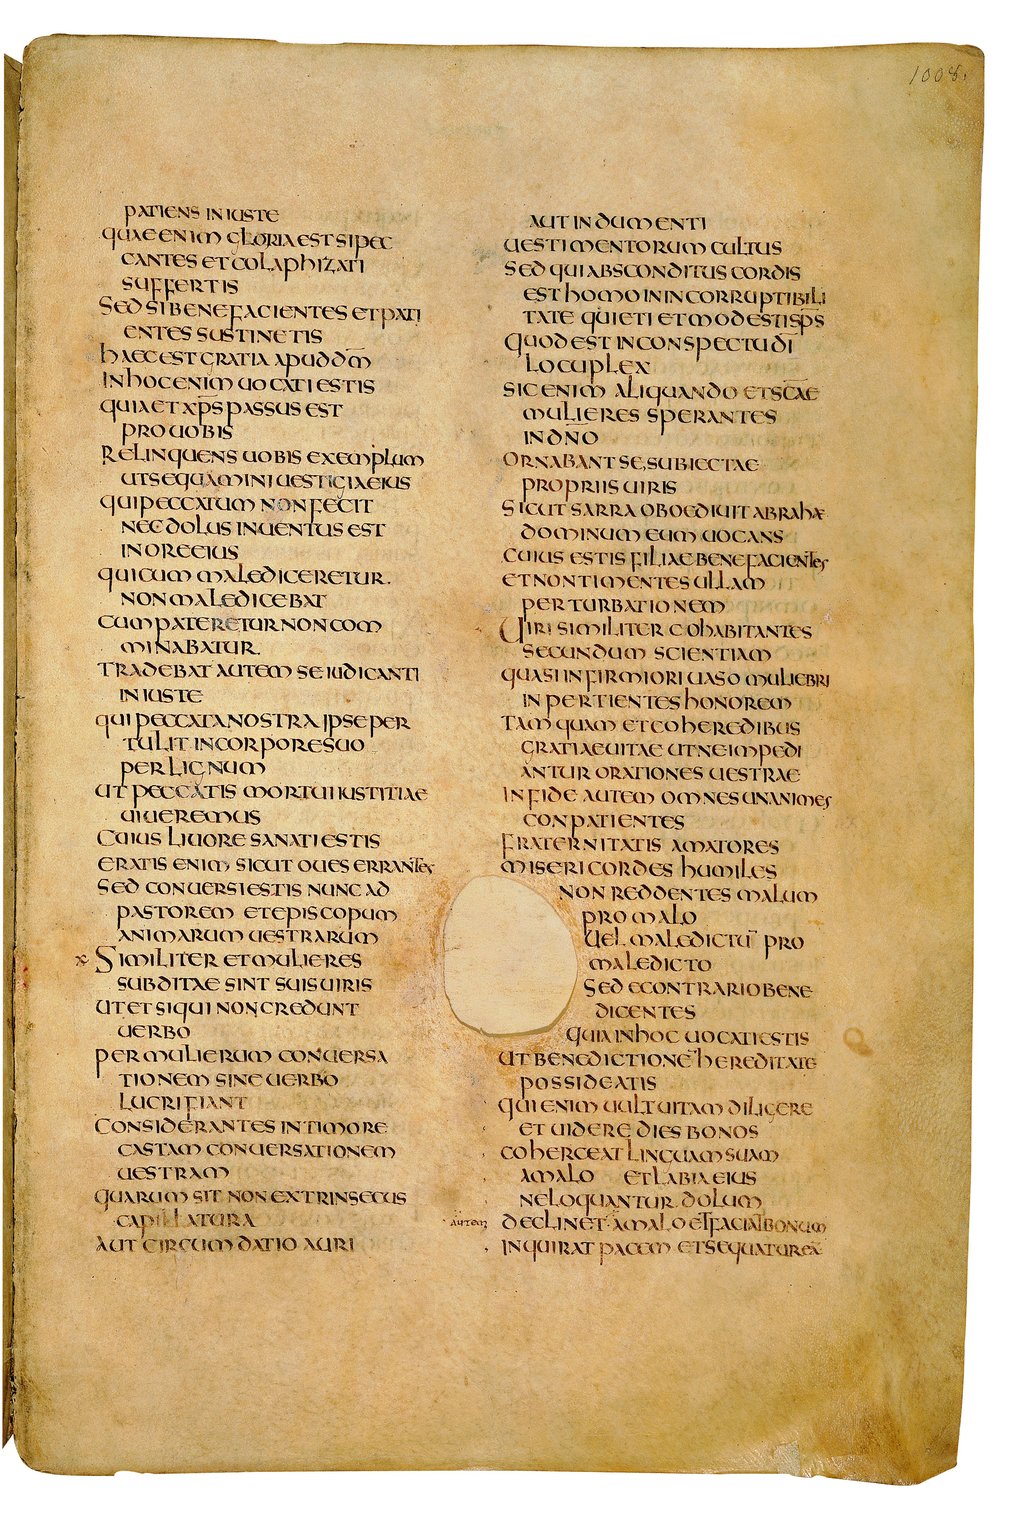 1008.
PATIENS INIUSTE
QUAE ENIM GLORIA EST SI PEC
CANTES ET COLAPHIZATI
SUFFERTIS
SED SI BENEFACIENTES ET PATI
ENTES SUSTINETIS
HAEC EST GRATIA APUD DM̅
IN HOC ENIM UOCATI ESTIS
QUIA ET XP̅S PASSUS EST
PRO UOBIS
RELINQUENS UOBIS EXEMPLUM
UT SEQUAMINI UESTIGIA EIUS
QUI PECCATUM NON FECIT
NEC DOLUS INUENTUS EST
IN ORE EIUS
QUI CUM MALEDICERETUR.
NON MALEDICEBAT
CUM PATERETUR NON COM
MINABATUR.
TRADEBAT AUTEM SE IUDICANTI
INIUSTE
QUI PECCATA NOSTRA IPSE PER
TULIT IN CORPORE SUO
PER LIGNUM
UT PECCATIS MORTUI IUSTITIAE
UIUEREMUS
CUIUS LIUORE SANATI ESTIS
ERATIS ENIM SICUT OUES ERRANTES
SED CONUERSI ESTIS NUNC AD
PASTOREM ET EPISCOPUM
ANIMARUM UESTRARUM
SIMILITER ET MULIERES
SUBDITAE SINT SUIS UIRIS
UT ET SI QUI NON CREDUNT
UERBO
PER MULIERUM CONUERSA
TIONEM SINE UERBO
LUCRIFIANT
CONSIDERANTES IN TIMORE
CASTAM CONUERSATIONEM
UESTRAM
QUARUM SIT NON EXTRINSECUS
CAPILLATURA
AUT CIRCUMDATIO AURI
AUT INDUMENTI
UESTIMENTORUM CULTUS
SED QUI ABSCONDITUS CORDIS
EST HOMO IN INCORRUPTIBILI
TATE QUIETI ET MODESTI SP̅S
QUOD EST IN CONSPECTU DI̅
LOCUPLEX
SIC ENIM ALIQUANDO ET SC̅AE
MULIERES SPERANTES
IN DN̅O
ORNABANT SE, SUBIECTAE
PROPRIIS UIRIS
SICUT SARRA OBOEDIUIT ABRAHAE
DOMINUM EUM UOCANS
CUIUS ESTIS FILIAE BENEFACIENTES
ET NON TIMENTES ULLAM
PERTURBATIONEM
UIRI SIMILITER COHABITANTES
SECUNDUM SCIENTIAM
QUASI INFIRMIORI UASO MULIEBRI
INPERTIENTES HONOREM
TAMQUAM ET COHEREDIBUS
GRATIAE UITAE UT NE IMPEDI
ANTUR ORATIONES UESTRAE
IN FIDE AUTEM OMNES UNANIMES
CONPATIENTES
FRATERNITATIS AMATORES
MISERICORDES HUMILES
NON REDDENTES MALUM
PRO MALO
UEL MALEDICTU̅ PRO
MALEDICTO
SED E CONTRARIO BENE
DICENTES
QUIA IN HOC UOCATI ESTIS
UT BENEDICTIONE̅ HEREDITATE
POSSIDEATIS
QUI ENIM UULT UITAM DILIGERE
ET UIDERE DIES BONOS
COHERCEAT LINGUAM SUAM
A MALO ET LABIA EIUS
NE LOQUANTUR DOLUM
AUTEM DECLINET A MALO ET FACIAT BONUM
INQUIRAT PACEM ET SEQUATUR EĀ